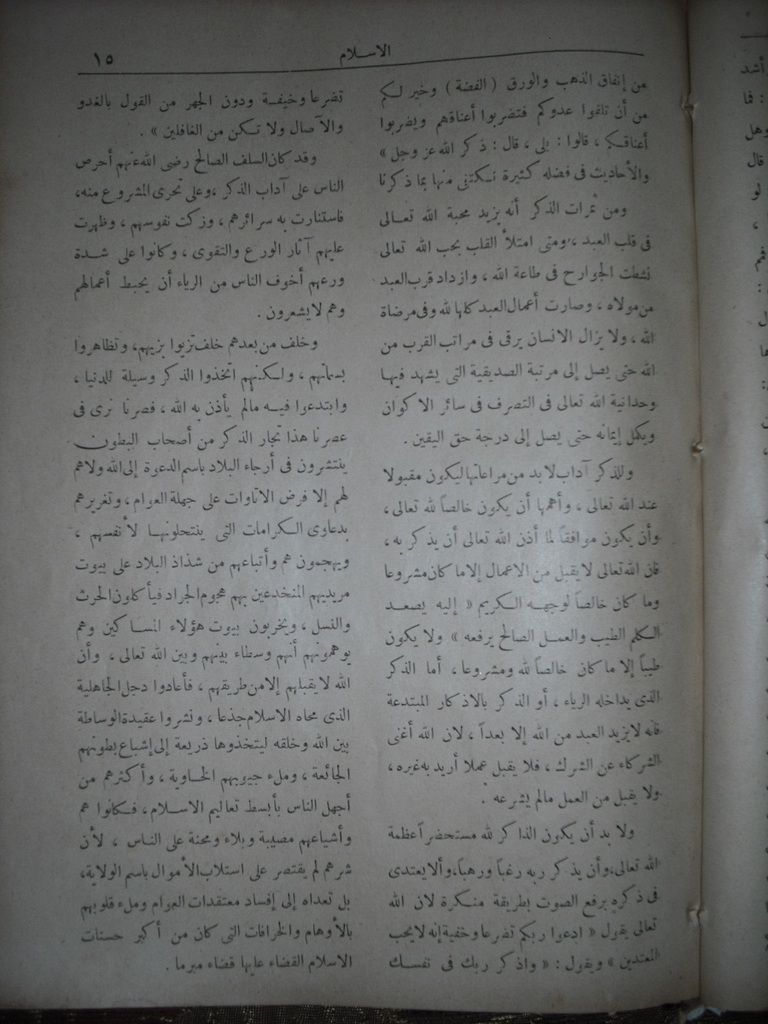 الاسلام
١٥
من إنفاق الذهب والورق ( الفضة ) وخير لكم
من أن تلقوا عدوكم فتضربوا أعناقهم ويضربوا
أعناقكم ، قالوا : بلى ، قال : ذكر الله عز وجل »
والأحاديث فى فضله كثيرة نكتفى منها بما ذكرنا
ومن ثمرات الذكر أنه يزيد محبة الله تعالى
فى قلب العبد ، ومتى امتلأ القلب بحب الله تعالى
نشطت الجوارح فى طاعة الله ، وازداد قرب العبد
من مولاه ، وصارت أعمال العبد كلها لله وفى مرضاة
الله ، ولا يزال الانسان يرقى فى مراتب القرب من
الله حتى يصل إلى مرتبة الصديقية التى يشهد فيها
وحدانية الله تعالى فى التصرف فى سائر الاكوان
ويكمل إيمانه حتى يصل إلى درجة حق اليقين .
وللذكر آداب لا بد من مراعاتها ليكون مقبولا
عند الله تعالى ، وأهمها أن يكون خالصاً لله تعالى ،
وأن يكون موافقاً لما أذن الله تعالى أن يذكر به ،
فان الله تعالى لا يقبل من الاعمال إلا ما كان مشروعا
وما كان خالصاً لوجهه الكريم « إليه يصعد
الكلم الطيب والعمل الصالح يرفعه » ولا يكون
طيباً إلا ما كان خالصاً لله ومشروعا ، أما الذكر
الذى يداخله الرياء ، أو الذكر بالاذكار المبتدعة
فانه لا يزيد العبد من الله إلا بعداً ، لان الله أغنى
الشركاء عن الشرك ، فلا يقبل عملا أريد به غيره ،
ولا يقبل من العمل مالم يشرعه .
ولا بد أن يكون الذاكر لله مستحضراً عظمة
الله تعالى ، وأن يذكر ربه رغباً ورهباً ، وألا يعتدى
فى ذكره برفع الصوت بطريقة منكرة لان الله
تعالى يقول « ادعوا ربكم تضرعا وخفية إنه لا يحب
المعتدين » ويقول : « واذكر ربك فى نفسك
تضرعا وخيفة ودون الجهر من القول بالغدو
والآصال ولا تكن من الغافلين » .
وقد كان السلف الصالح رضى الله عنهم أحرص
الناس على آداب الذكر ، وعلى تحرى المشروع منه ،
فاستنارت به سرائرهم ، وزكت نفوسهم ، وظهرت
عليهم آثار الورع والتقوى ، وكانوا على شدة
ورعهم أخوف الناس من الرياء أن يحبط أعمالهم
وهم لا يشعرون .
وخلف من بعدهم خلف تزيوا بزيهم ، وتظاهروا
بسماتهم ، ولكنهم اتخذوا الذكر وسيلة للدنيا ،
وابتدعوا فيه مالم يأذن به الله ، فصرنا نرى فى
عصرنا هذا تجار الذكر من أصحاب البطون
ينتشرون فى أرجاء البلاد باسم الدعوة إلى الله ولا هم
لهم إلا فرض الاتاوات على جهلة العوام ، وتغريرهم
بدعاوى الكرامات التى ينتحلونها لأنفسهم ،
ويهجمون هم وأتباعهم من شذاذ البلاد على بيوت
مريديهم المنخدعين بهم هجوم الجراد فيأكلون الحرث
والنسل ، ويخربون بيوت هؤلاء المساكين وهم
يوهمونهم أنهم وسطاء بينهم وبين الله تعالى ، وأن
الله لا يقبلهم إلا من طريقهم ، فأعادوا دجل الجاهلية
الذى محاه الاسلام جذعا ، ونشروا عقيدة الوساطة
بين الله وخلقه ليتخذوها ذريعة إلى إشباع بطونهم
الجائعة ، وملء جيوبهم الخاوية ، وأكثرهم من
أجهل الناس بأبسط تعاليم الاسلام ، فكانوا هم
وأشياعهم مصيبة وبلاء ومحنة على الناس ، لأن
شرهم لم يقتصر على استلاب الأموال باسم الولاية ،
بل تعداه إلى إفساد معتقدات العوام وملء قلوبهم
بالأوهام والخرافات التى كان من أكبر حسنات
الاسلام القضاء عليها قضاء مبرما .